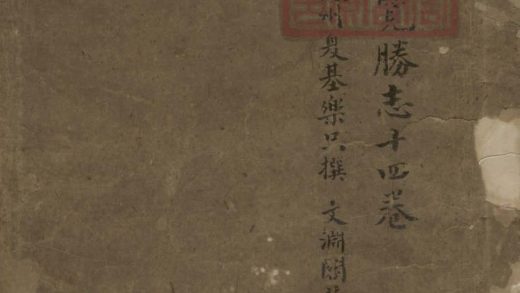 覽勝志十四卷
州夏基樂只撰 文淵閣